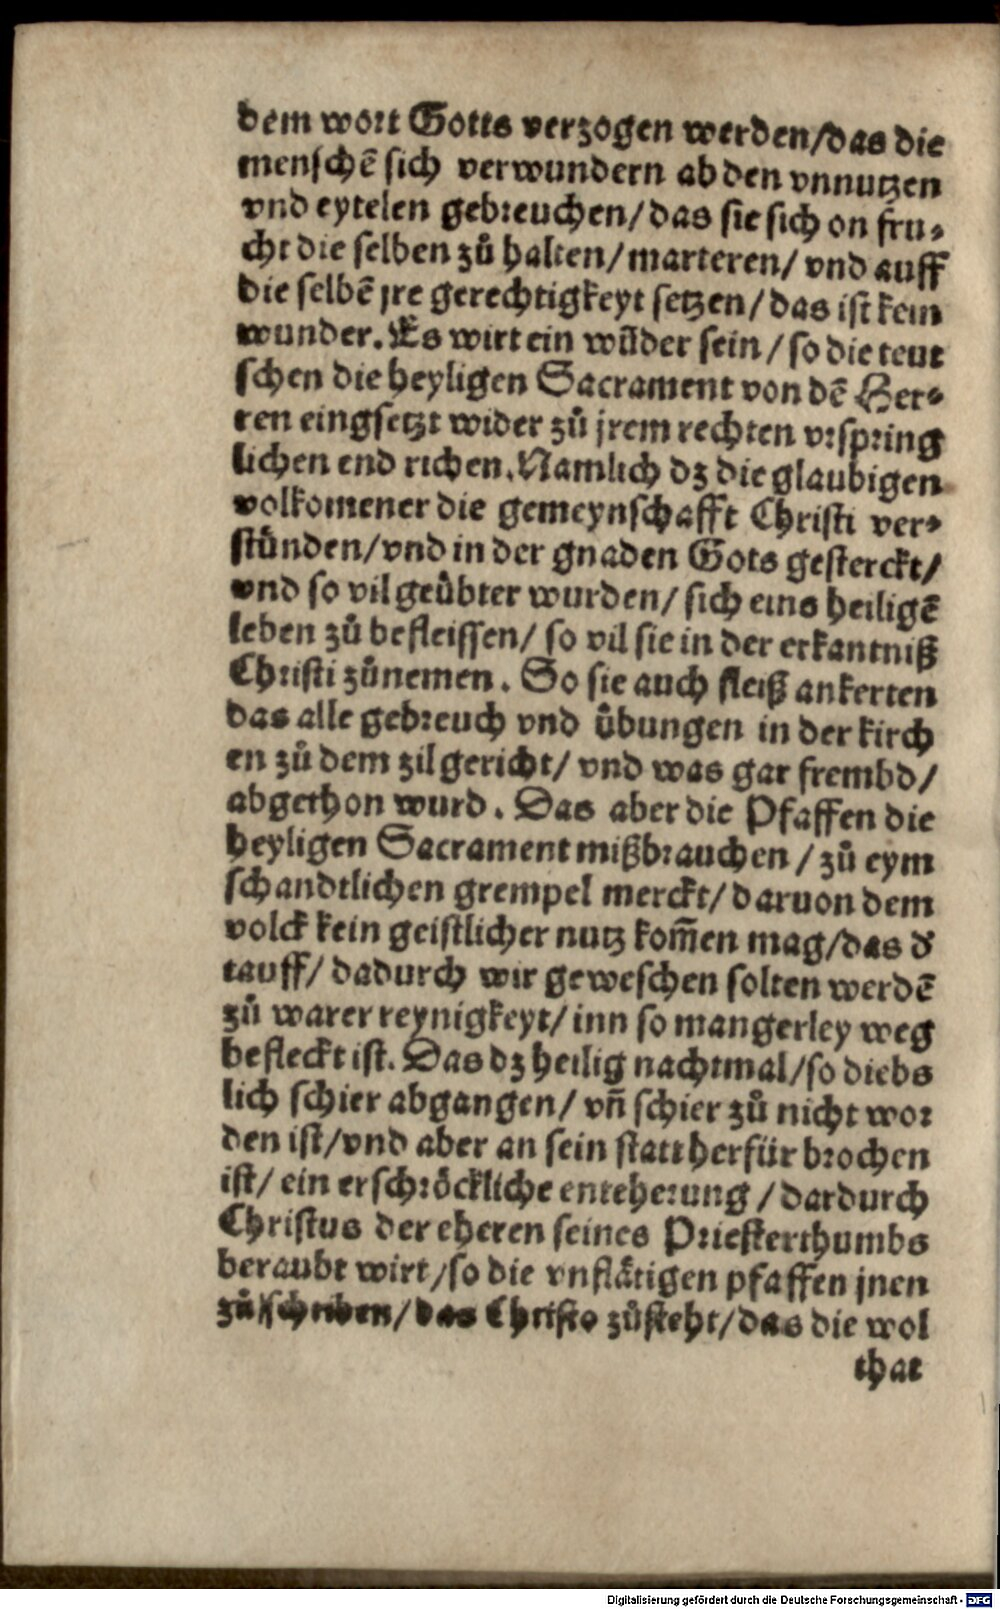 dem wort Gotts verzogen werden/das die
menschẽ sich verwundern ab den vnnutzen
vnd eytelen gebreuchen/das sie sich on fru⸗
cht die selben zů halten/marteren/vnd auff
die selbẽ jre gerechtigkeyt setzen/das ist kein
wunder. Es wirt ein wũder sein/so die teut
schen die heyligen Sacrament von dẽ Her⸗
ren eingsetzt wider zů jrem rechten vrspring
lichen end richen. Namlich dz die glaubigen
volkomener die gemeynschafft Christi ver⸗
stünden/vnd in der gnaden Gots gesterckt/
vnd so vil geůbter wurden/sich eins heiligẽ
leben zů befleissen/so vil sie in der erkantniß
Christi zůnemen. So sie auch fleiß ankerten
das alle gebreuch vnd ůbungen in der kirch
en zů dem zil gericht/vnd was gar frembd/
abgethon wurd. Das aber die Pfaffen die
heyligen Sacrament mißbrauchen/zů eym
schandtlichen grempel merckt/daruon dem
volck kein geistlicher nutz kom̃en mag/das d'
tauff/dadurch wir geweschen solten werdẽ
zů warer reynigkeyt/inn so mangerley weg
befleckt ist. Das dz heilig nachtmal/so diebs
lich schier abgangen/vñ schier zů nicht wor
den ist/vnd aber an sein statt herfür brochen
ist/ein erschröckliche enteherung/dardurch
Christus der eheren seines Priesterthumbs
beraubt wirt/so die vnflätigen pfaffen jnen
zů schriben/das Christo zůsteht/das die wol
that
Digitalisierung gefördert durch die Deutsche Forschungsgemeinschaft - DFG